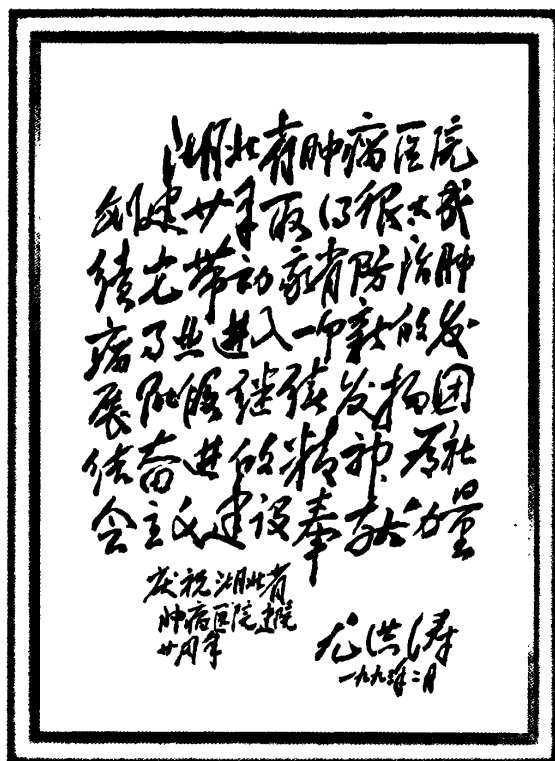 湖北省肿瘤医院
创建廿年取得很大成
绩它带动我省防治肿
瘤事业进入一个新的发
展阶段继续发扬团
结奋进的精神为社
会主义建设奉献力量
庆祝湖北省
肿瘤医院建院
廿周年
尤洪涛
一九九三年二月